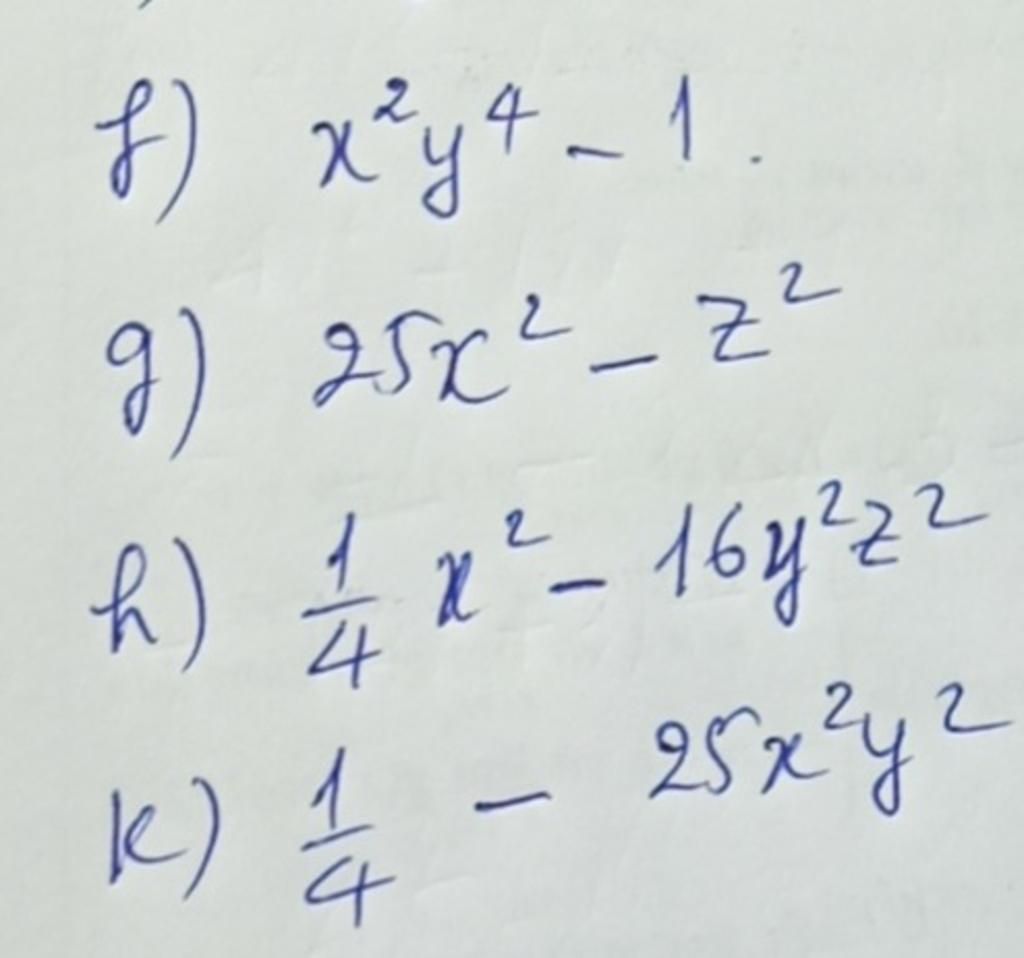 f) x²y⁴ - 1.
g) 25x² - z²
h) 1/4 x² - 16y²z²
k) 1/4 - 25x²y²